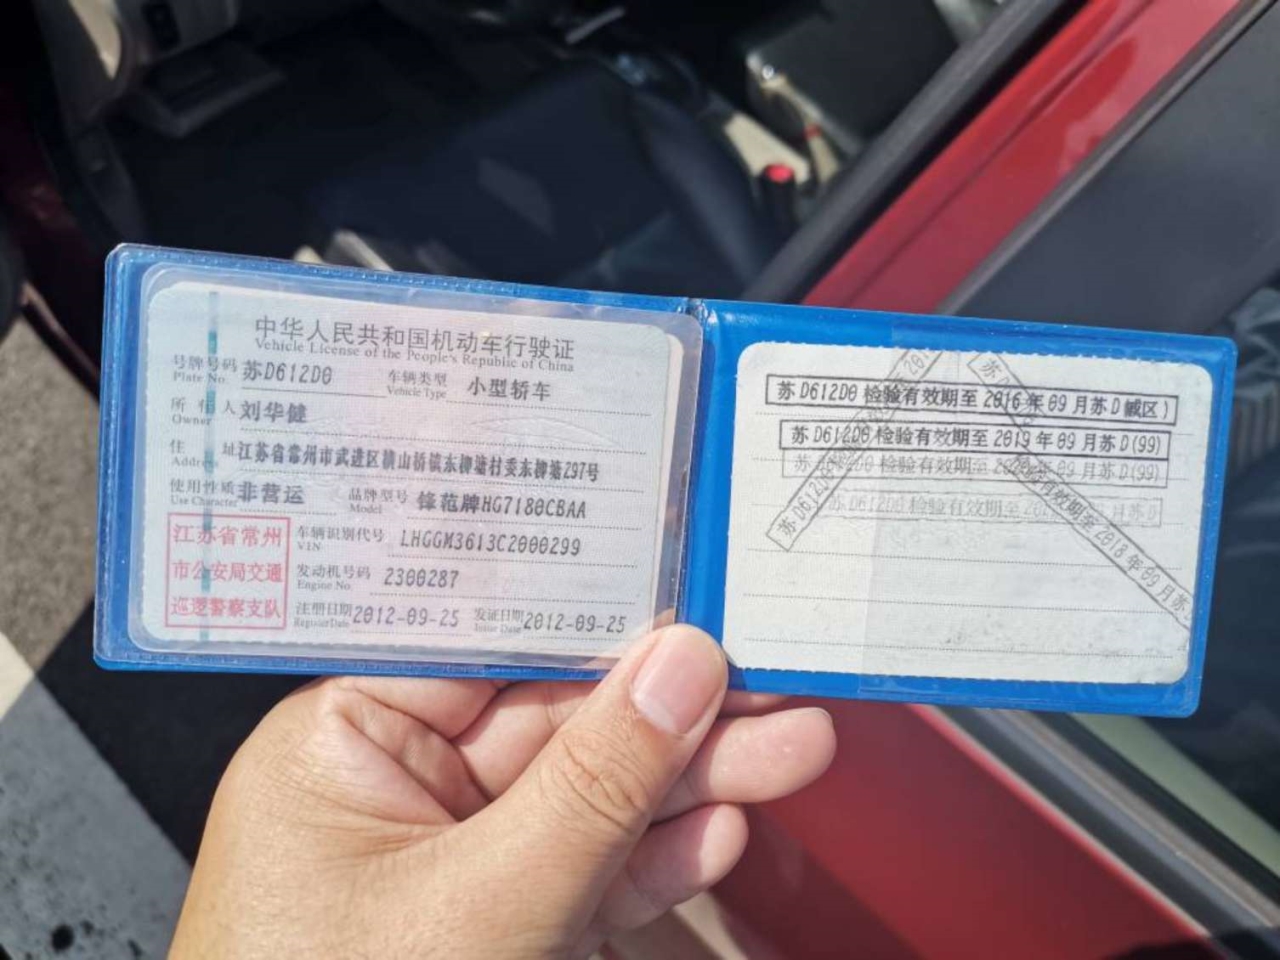 中华人民共和国机动车行驶证
Vehicle License of the People's Republic of China
号牌号码 苏D612D0 车辆类型 小型轿车
Plate No. Vehicle Type
所有人 刘华健
Owner
住址 江苏省常州市武进区横山桥镇东柳塘村委东柳塘297号
Address
使用性质 非营运 品牌型号 锋范牌HG7180CBAA
Use Character Model
江苏省常州
市公安局交通
巡逻警察支队
车辆识别代号 LHGGM3613C2000299
VIN
发动机号码 2300287
Engine No.
注册日期 2012-09-25 发证日期 2012-09-25
Register Date Issue Date
苏D612D0 检验有效期至 2016年09月苏D
苏D612D0 检验有效期至 2019年09月苏D(99)
检验有效期至 年09月苏D(99)
苏D612D0 检验有效期至
苏D612D0
有效期至 2018年09月苏